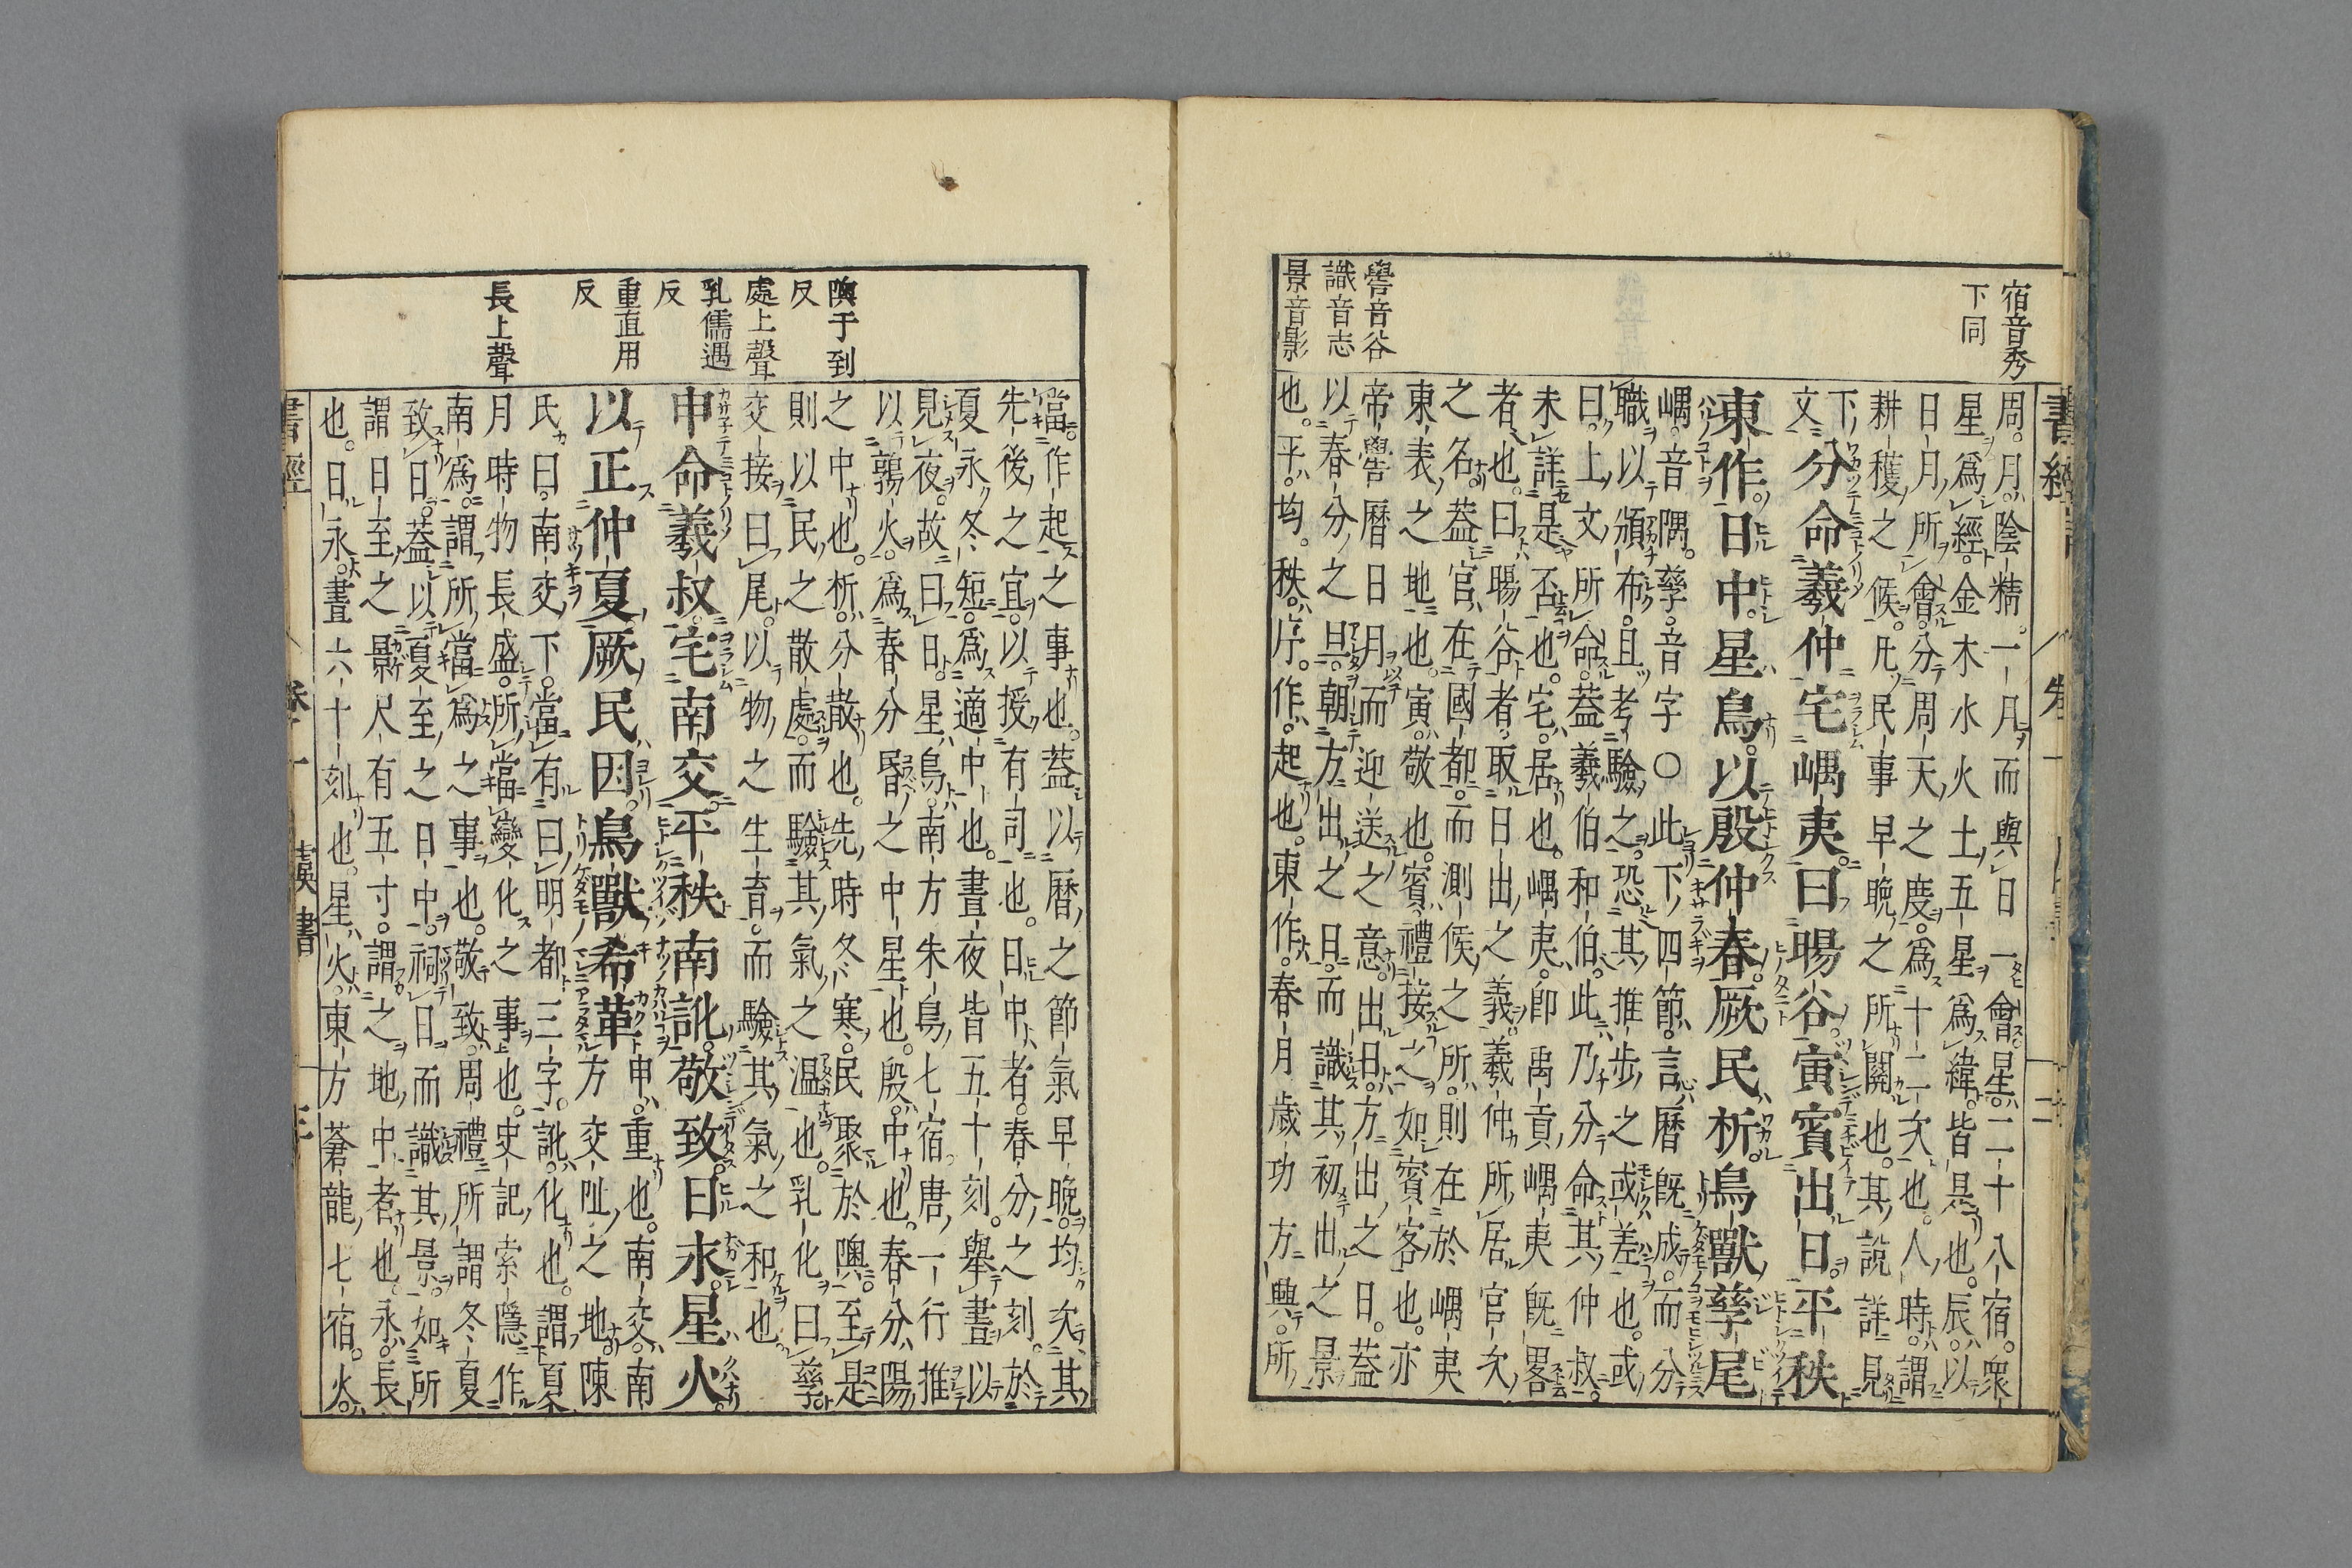 宿音秀
下同
嚳音谷
識音志
景音影
書經
周。月。陰精。一月而與日一會。星。二十八宿。衆
星爲經。金木水火土五星爲緯。皆是也。辰。以
日月所會。分周天之度。爲十二次也。人時。謂
耕穫之候。凡民事早晩之所關也。其說詳見
下
文
分命羲仲宅嵎夷。曰暘谷。寅賓出日。平秩
東作。日中。星鳥。以殷仲春。厥民析。鳥獸孳尾
嵎。音隅。孳。音字○此下四節。言曆既成。而分
職以頒布。且考驗之。恐其推步之或差也。或
曰。上文所命。蓋羲伯和伯。此乃分命其仲叔。
未詳是否也。宅。居也。嵎夷。卽禹貢嵎夷既畧
者也。曰暘谷者。取日出之義。羲仲所居官次
之名。蓋官在國都。而測候之所。則在於嵎夷
東表之地也。寅。敬也。賓。禮接之如賓客也。亦
帝嚳曆日月而迎送之意。出日。方出之日。蓋
以春分之旦。朝方出之日。而識其初出之景
也。平。均。秩。序。作。起也。東作。春月歲功方興。所
隩于到
反
處上聲
乳儒遇
反
重直用
反
長上聲
當作起之事也。蓋以曆之節氣早晩。均次其
先後之宜。以授有司也。日中者。春分之刻。於
夏永冬短。爲適中也。晝夜皆五十刻。舉晝以
見夜。故曰日。星鳥。南方朱鳥七宿。唐一行推
以鶉火。爲春分昏之中星也。殷。中也。春分。陽
之中也。析。分散也。先時冬寒。民聚於隩。至是
則以民之散處。而驗其氣之温也。乳化曰孳
交接曰尾。以物之生育。而驗其氣之和也
申命羲叔宅南交。平秩南訛。敬致。日永星火。
以正仲夏。厥民因。鳥獸希革
申。重也。南交。南
方交阯之地。陳
氏曰。南交下。當有曰明都三字。訛。化也。謂夏
月時物長盛。所當變化之事也。史記索隱作
南爲。謂所當爲之事也。敬致。周禮所謂冬夏
致日。蓋以夏至之日中。祠日而識其景。如所
謂日至之景尺有五寸。謂之地中者也。永。長
也。日永。晝六十刻也。星火。東方蒼龍七宿。火。
書經